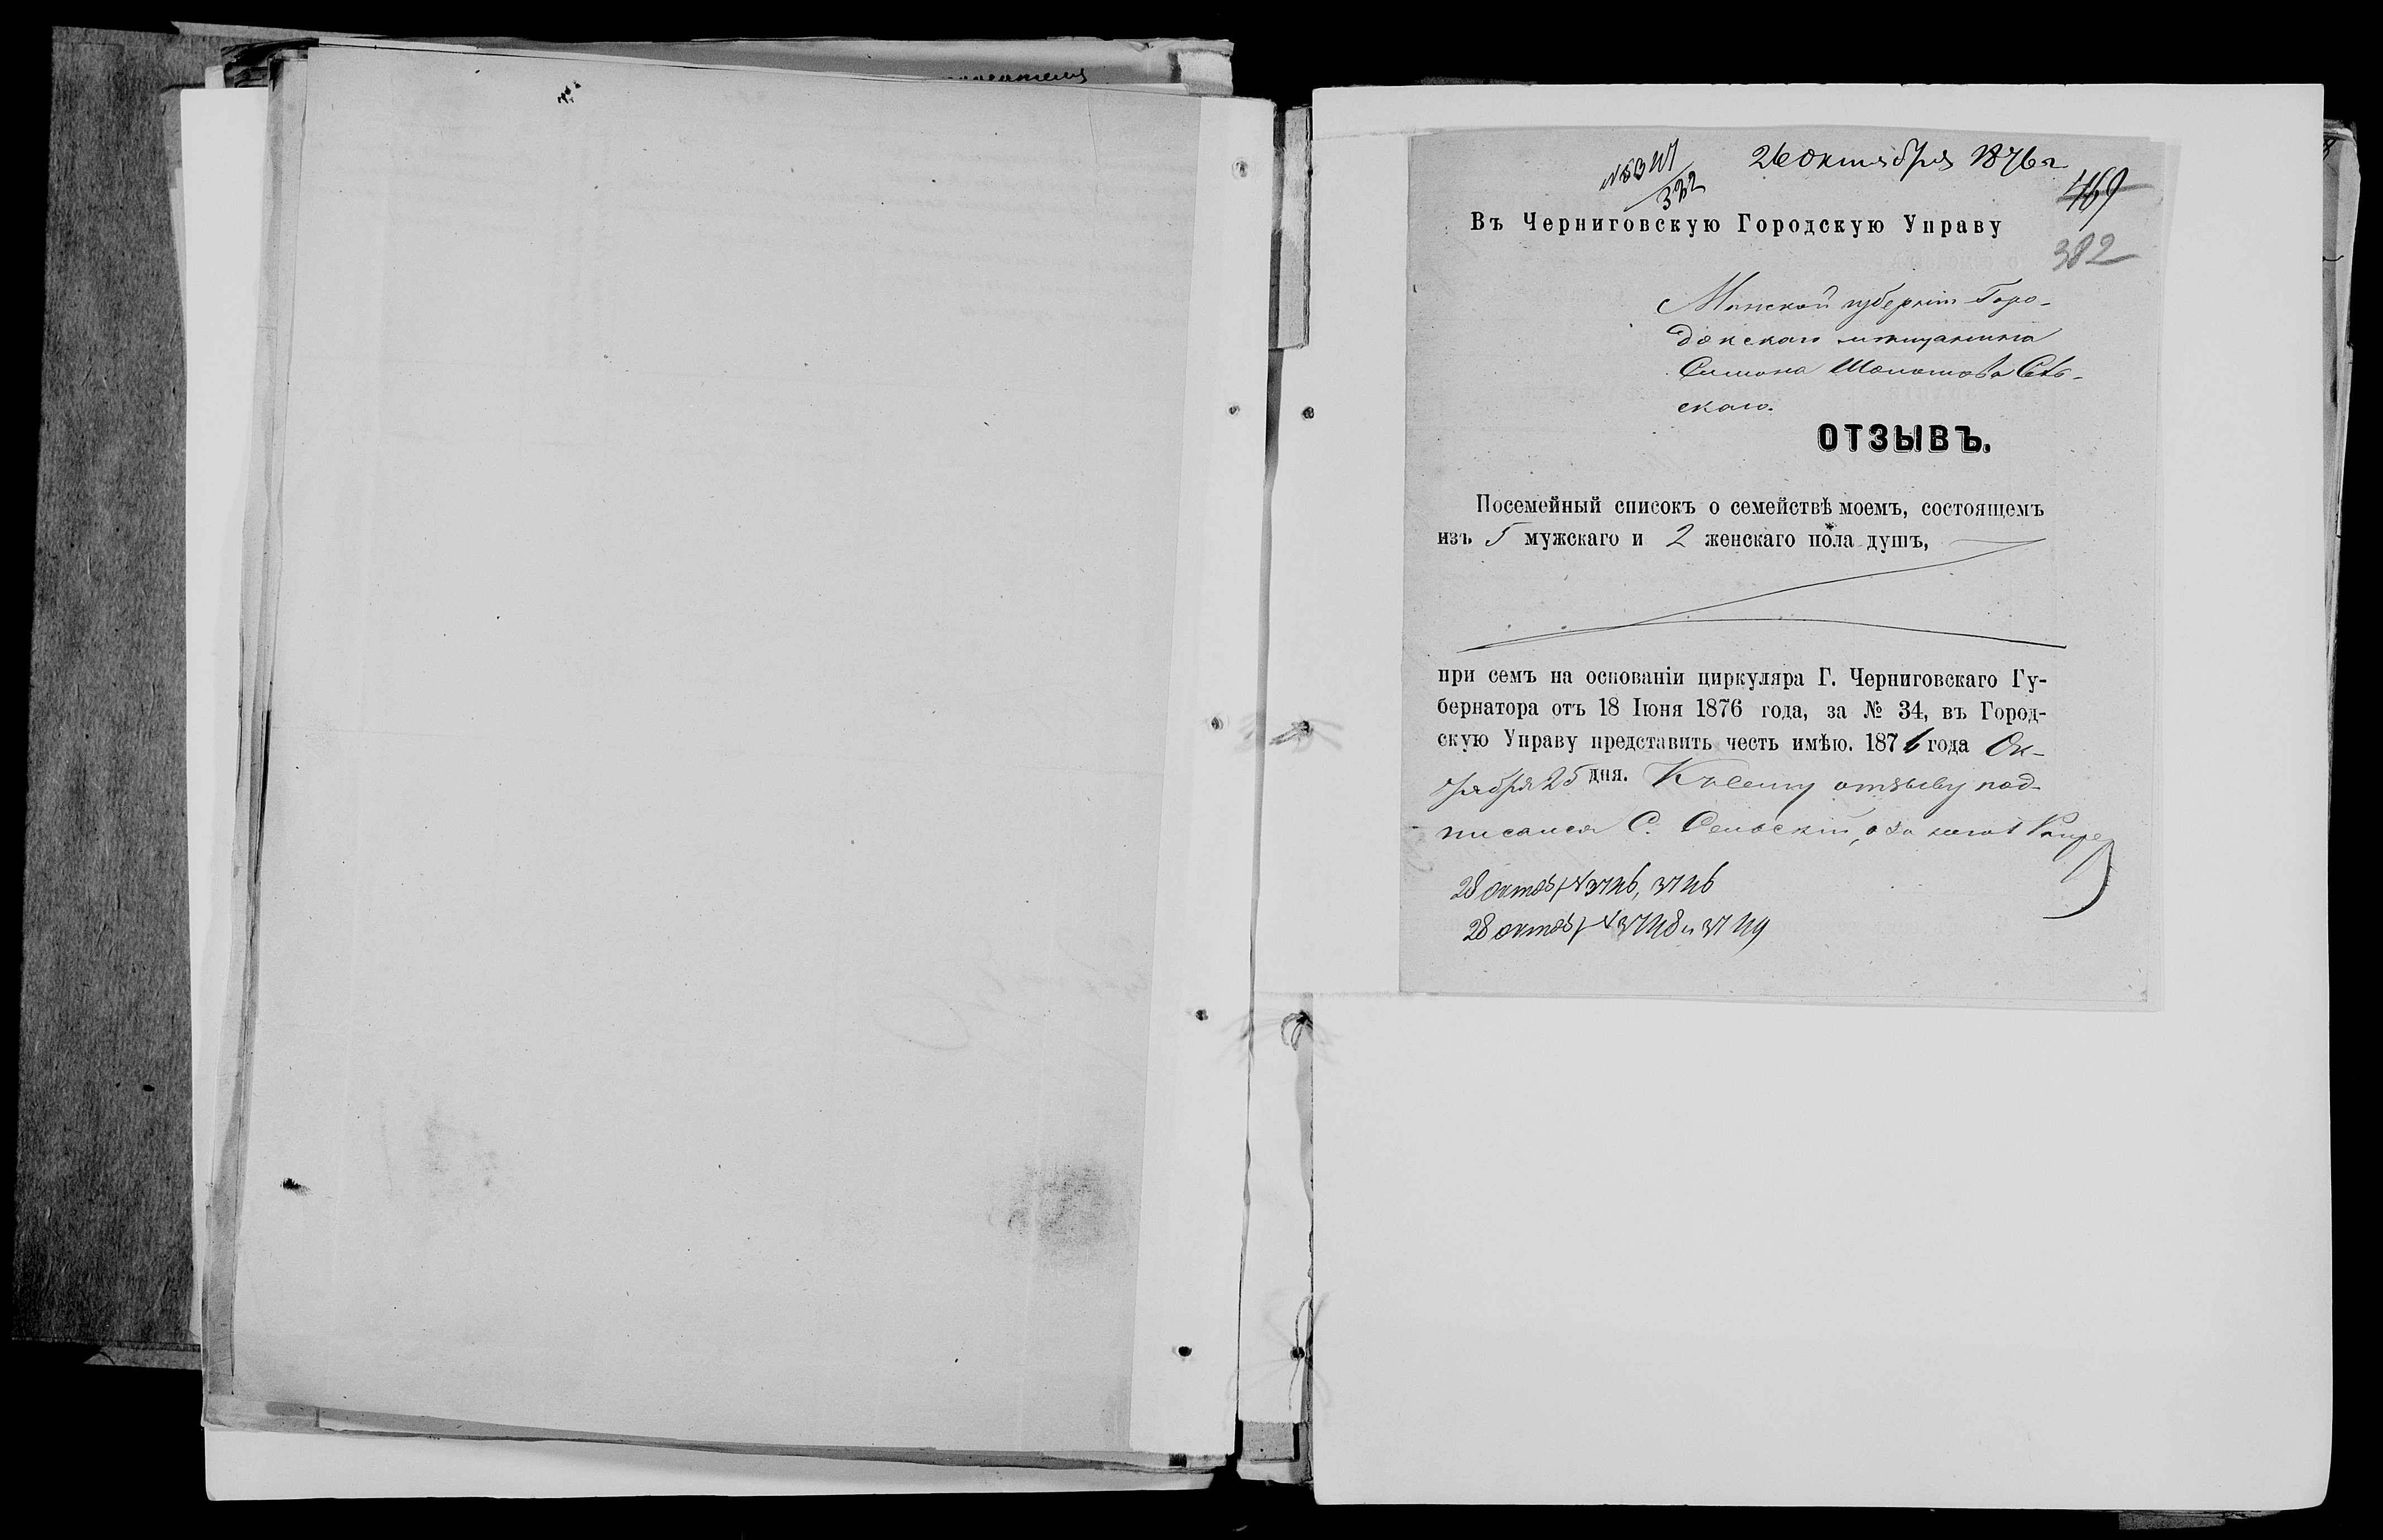 26 октября 1876 г
332
469
Въ Черниговскую Городскую Управу
382
Минской губерніи Горо-
докскаго мѣщанина
Симона
скаго.
ОТЗЫВЪ.
Посемейный списокъ о семействѣ моемъ, состоящемъ
изъ 5 мужскаго и 2 женскаго пола душъ,
при семъ на основаніи циркуляра Г. Черниговскаго Гу-
бернатора отъ 18 Іюня 1876 года, за № 34, въ Город-
скую Управу представить честь имѣю. 1876 года Ок-
тября 25 дня. К сему отзыву под-
писался С.
28 октяб
28 октяб